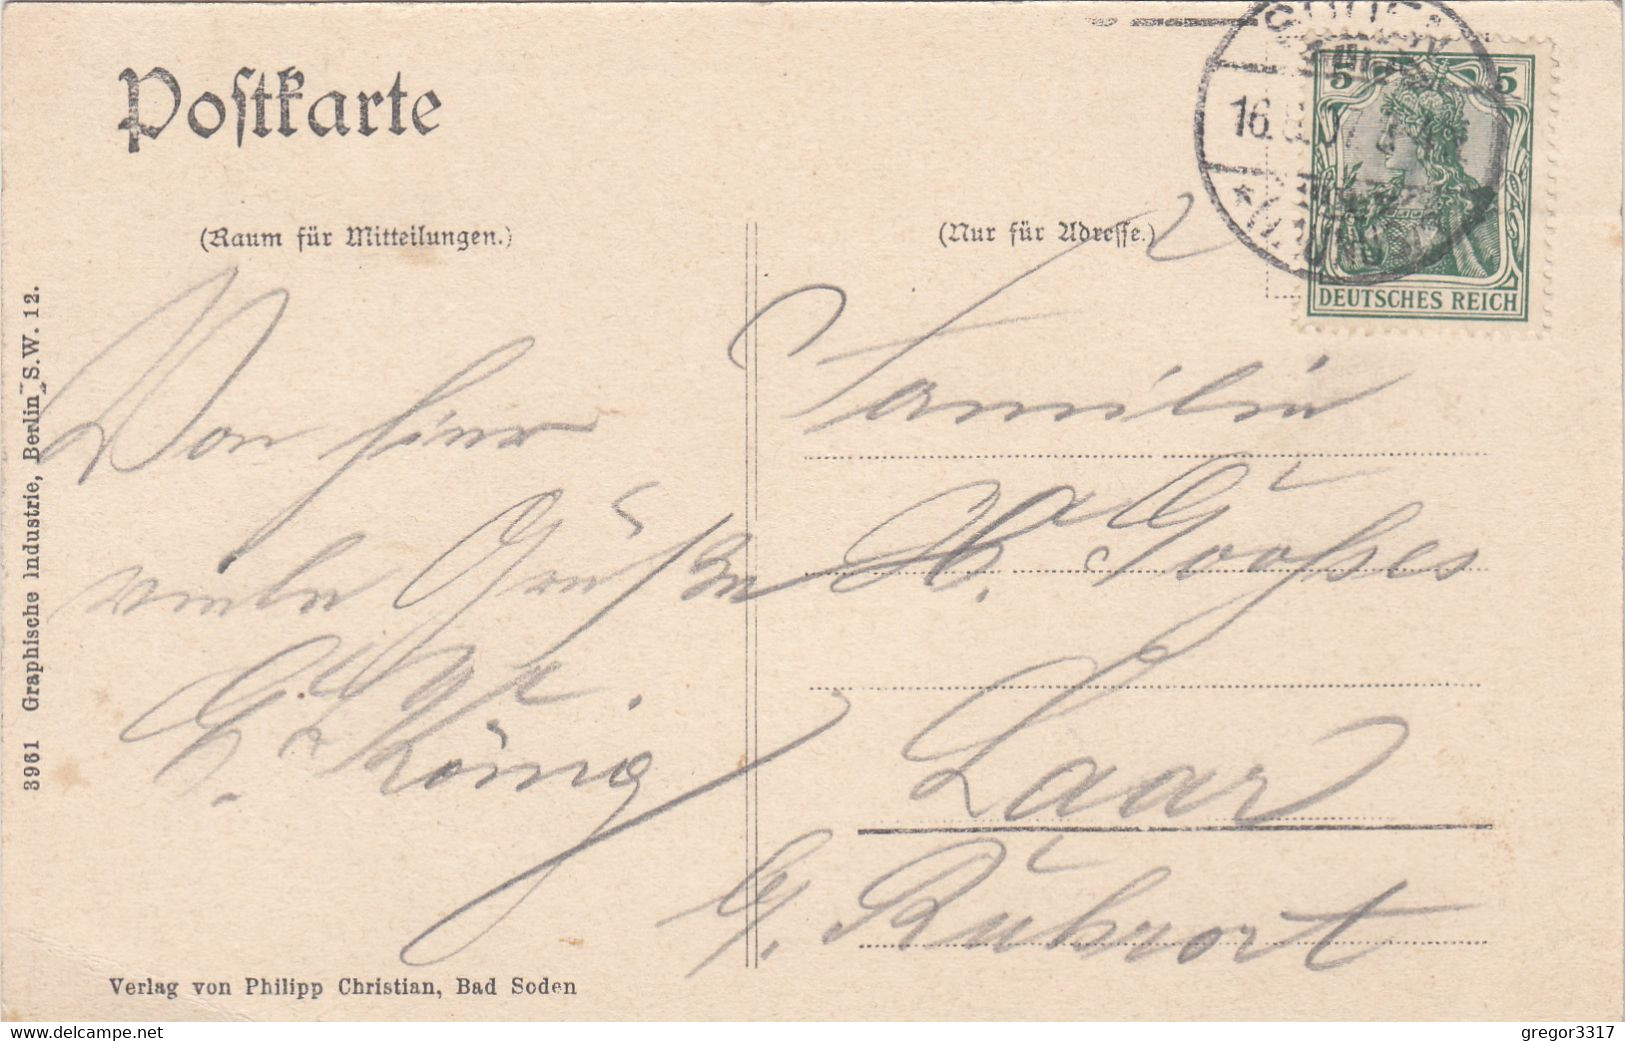 Postkarte
(Raum für Mitteilungen.)
(Nur für Adresse.)
5 5
16.
(TAUNUS)
DEUTSCHES REICH
Von hier
viele Grüße
König
Familie
H.
Laar
b/. Ruhrort
3961 Graphische Industrie, Berlin S.W. 12.
Verlag von Philipp Christian, Bad Soden
www.delcampe.net
gregor3317